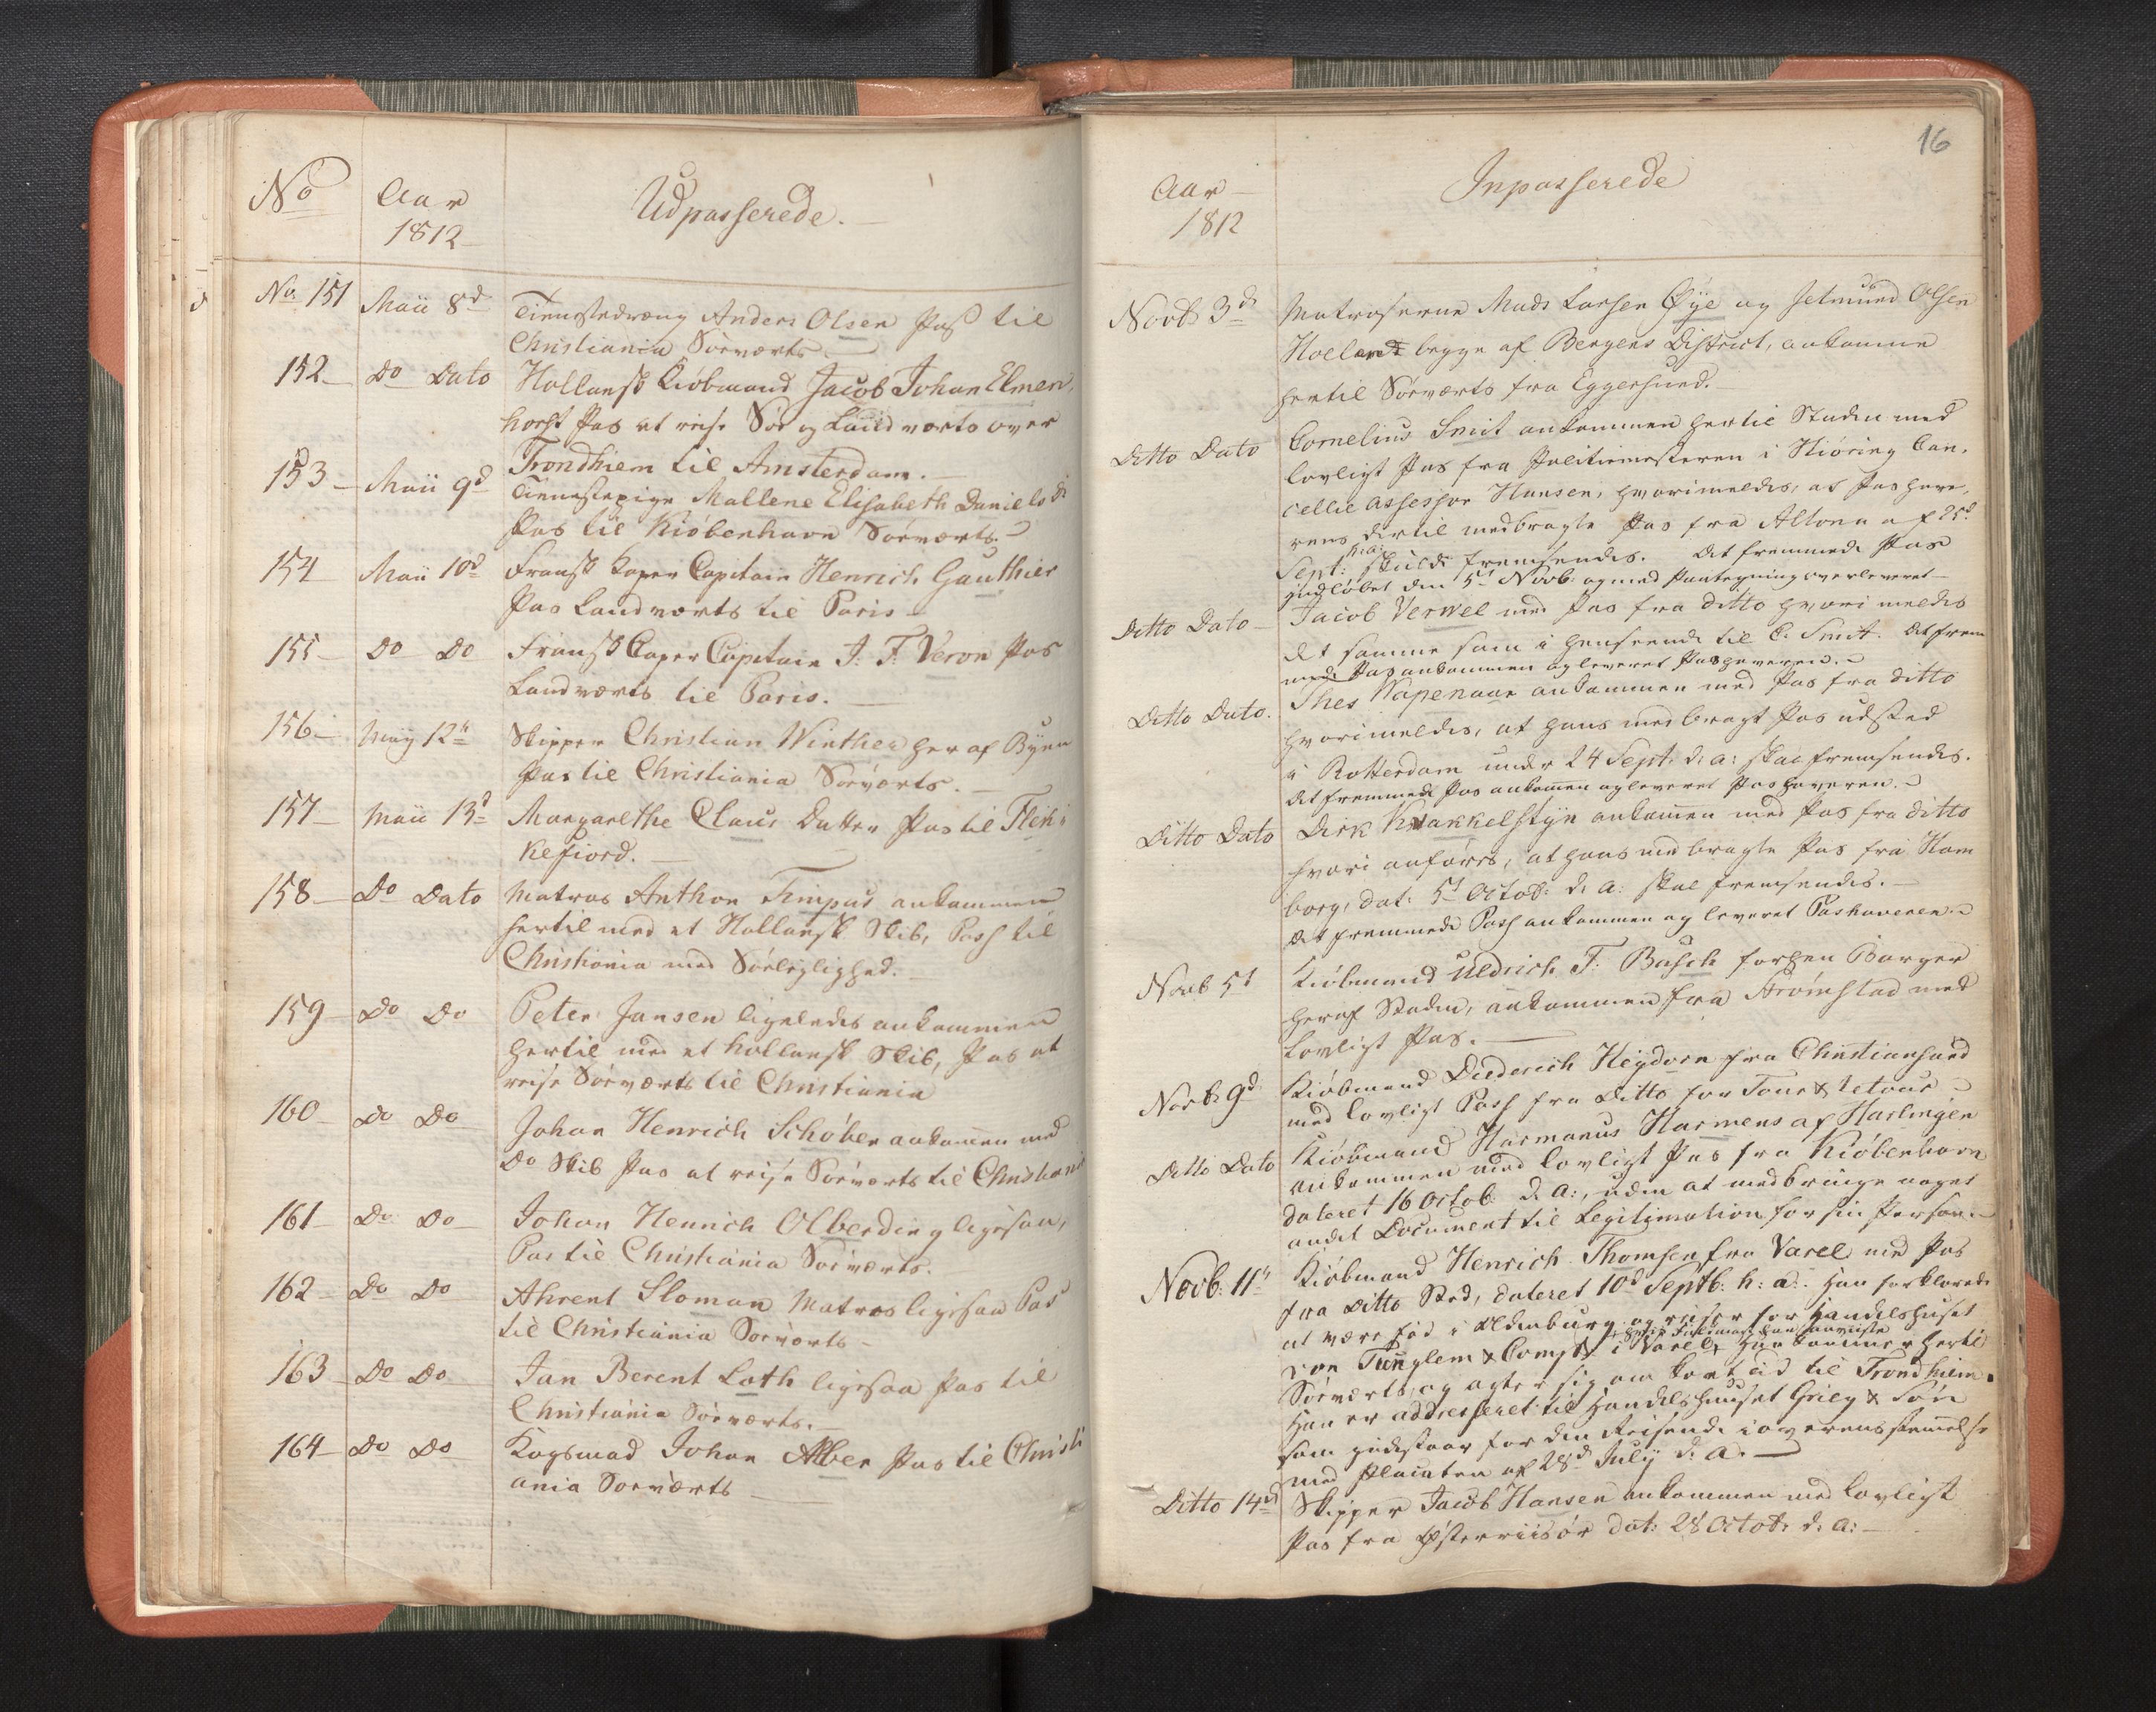 No Aar Udpasserede.
1812
No 151 Maii 8d Tienestedreng Anders Olsen Pass til
Christiania Söeværts
152 Do Dato Hollansk Kiöbmand Jacob Johan Elmen,
horst Pas at reise Söe og Landværts over
Trondhiem til Amsterdam.
153 Maii 9d Tienestepige Mallene Elisabeth Daniels Dr
Pas til Kiöbenhavn Söeværts.
154 Maii 10d Fransk Caper Capitain Henrich Gauthier
Pas Landværts til Paris
155 Do Do Fransk Caper Capitain J: F: Veron Pas
Landværts til Paris.
156 May 12te Skipper Christian Winther her af Byen
Pas til Christiania Söeværts.
157 Maii 13d Margarethe Claus Datter Pas til Flek,
kefiord.
158 Do Dato Matros Anthon Timpus ankommen
hertil med et Hollansk Skib, Pass til
Christiania med Söelejlighed.
159 Do Do Peter Jansen ligeledes ankommen
hertil med et hollansk Skib, Pas at
reise Söeværts til Christiania
160 Do Do Johan Henrich Schöber ankommen med
Do Skib Pas at reise Söeværts til Christiania
161 Do Do Johan Henrich Olberding ligesaa,
Pas til Christiania Söeværts.
162 Do Do Ahrent Sloman Matros ligesaa Pas
til Christiania Söeværts
163 Do Do Jan Berent Loth ligesaa Pas til
Christiania Söeværts.
164 Do Do Kogsmad Johan Alber Pas til Christi
ania Söeværts
16
Aar Inpasserede
1812
Novb 3d Matroserne Mads Larsen Øÿe og Jetmund Olsen
Hoeland begge af Bergens District, ankomne
hertil Söeværts fra Eggersund.
Ditto Dato Cornelius Smit ankommen hertil Staden med
lovligt Pas fra Politiemesteren i Hiöring Can,
cellie Assessor Hansen, hvori meldes, at Pashave,
rens dertil medbragte Pas fra Altona af 25d
h: a:
Sept: skulde fremsendes. Det fremmede Pas
indløbet den 5t Novb: og med Paategning overleveret
Ditto Dato Jacob Verwel med Pas fra ditto hvori meldes
det samme som i henseende til C. Smit. Det frem
mede Pas ankommen og leveret Pashaveren.
Ditto Dato. Thes Wapenaar ankommen med Pas fra ditto
hvori meldes, at hans medbragt Pas udsted
i Rotterdam under 24 Sept: d: a: skal fremsendes.
Det fremmede Pas ankomen og leveret Pashaveren.
Ditto Dato Dirk Krakkelstÿn ankomen med Pas fra ditto
hvori anföres, at hans medbragte Pas fra Ham
borg, dat: 5t Octob: d. A: skal fremsendes.
Det fremmede Pass ankommen og leveret Pashaveren.
Novb 5t Kiöbmand Uldrich F: Busch forhen Borger
heraf Staden, ankommen fra Strömstad med
lovligt Pas.
Novb. 9d Kiöbmand Diederich Heÿdorn fra Christiansund
med lovligt Pass fra Ditto for Tour & retour
Ditto Dato Kiöbmand Harmanus Harmens af Harlingen
ankommen med lovligt Pas fra Kiöbenhavn
dateret 16 Octob. d. A:, uden at medbringe noget
andet Document til Legitimation for sin Person.
Novb: 11te Kiöbmand Henrich Thomsen fra Varel med Pas
fra Ditto Sted, dateret 10d Septb: h: a:. Han forklarede
at være föd i Oldenburg og reiser for Handelshuset
hvis Fuldmagt han anviiste
von Tunglem & Comp: i Varel, Han kommer hertil
Söeværts, og agter sig om kort tid til Trondhiem.
Han er addresseret til Handelshuuset Grieg & Sön
som godestaar for den Reisende i overensstemmelse
med Placaten af 28d July d. A.
Ditto 14de Skipper Jacob Hansen ankommen med lovligt
Pas fra Österriisör dat: 28 Octob: d. a: